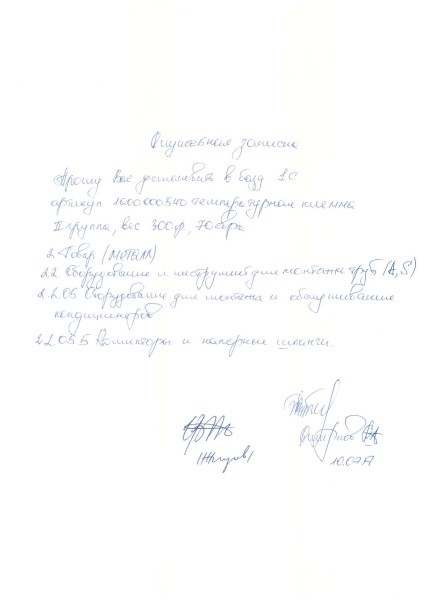 Служебная записка
Прошу Вас установить в базу 1С
артикул 1000000340 температурная клемма
II группа, вес 300гр, 70евро
2 Товар (металл)
2.2 Оборудование и инструмент для монтажа труб (A,S)
2.2.05 Оборудование для монтажа и обслуживание
кондиционеров
2.2.05.5 Коллекторы и напорные шланги.
10.07